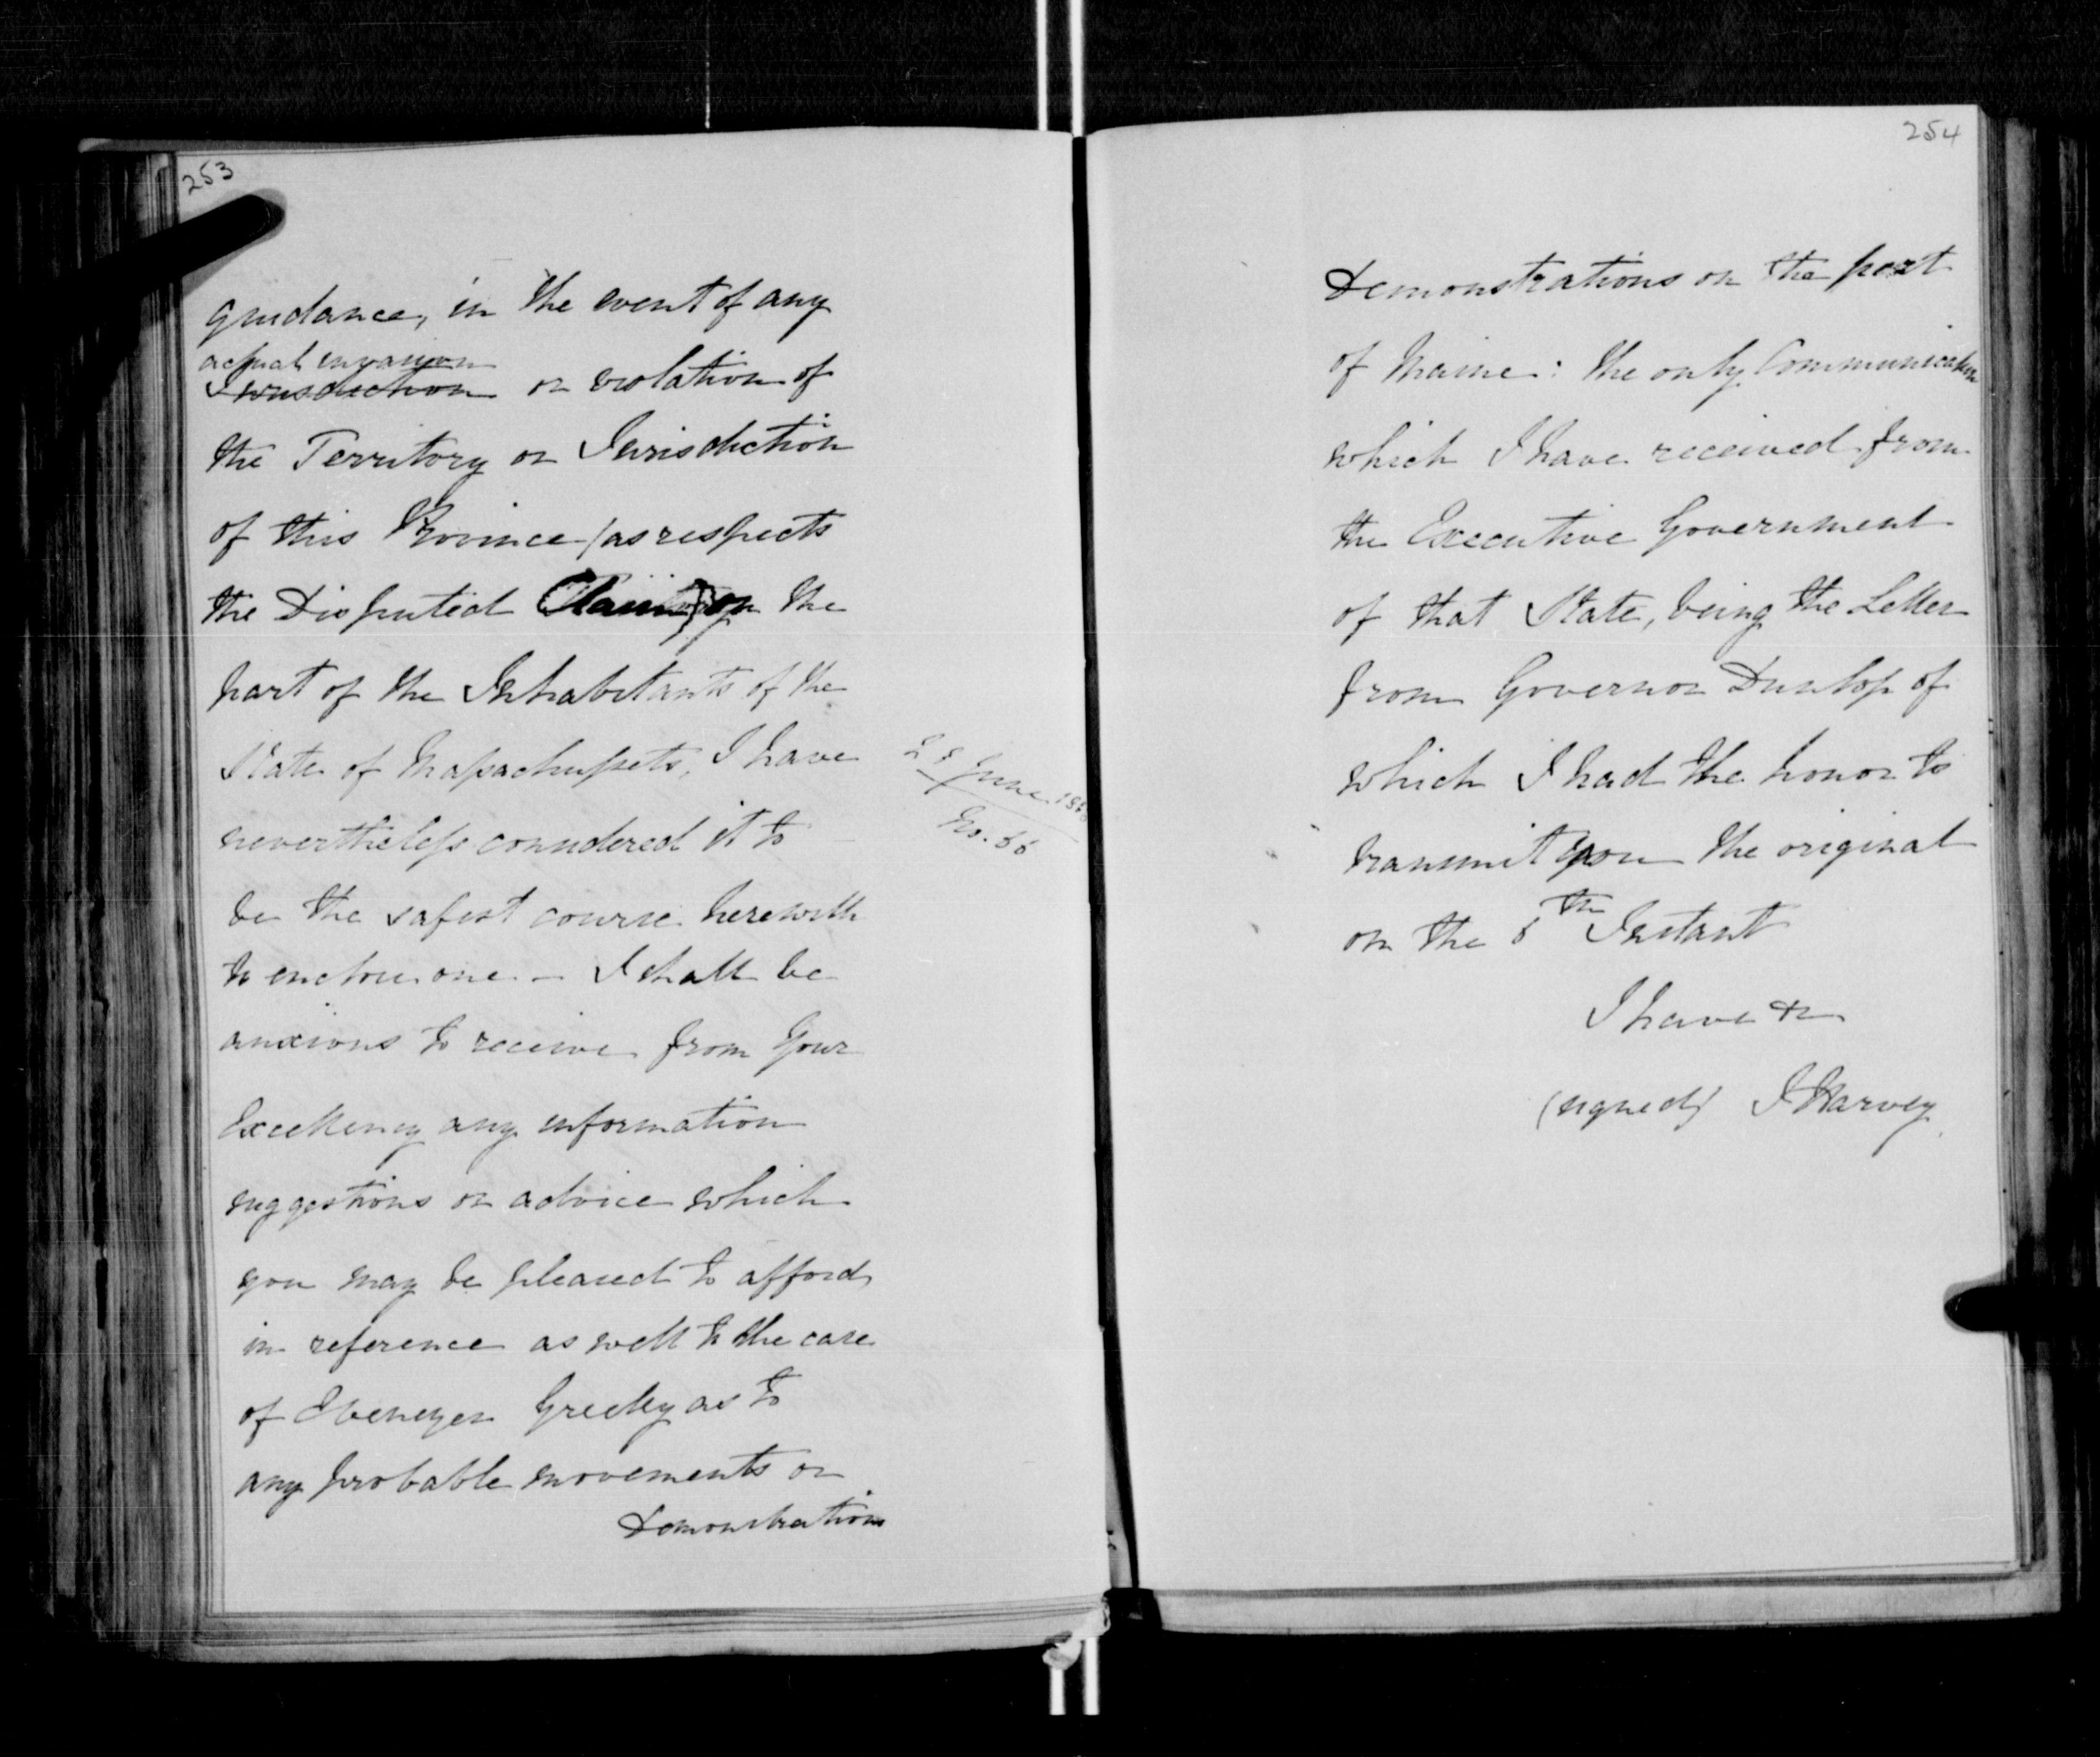 253
guidance, in the event of any
actual invasion
Jurisdiction or violation of
the Territory or Jurisdiction
of this Province (as respects
the Disputed Claim) on the
part of the Inhabitants of the
State of Massachussets, I have
nevertheless considered it to
be the safest course herewith
to enclose one - I shall be
anxious to receive from Your
Excellency any information
suggestions or advice which
you may be pleased to afford
in reference as well to the case
of Ebenezer Greeley as to
any probable movements or
Demonstrations
28 June
No. 36
254
Demonstrations on the part
of Maine: the only Communication
which I have received from
the Executive Government
of that State, being the Letter
from Governor Dunlop of
which I had the honor to
transmit you the original
on the th Instant
I have &c
(signed) J Harvey